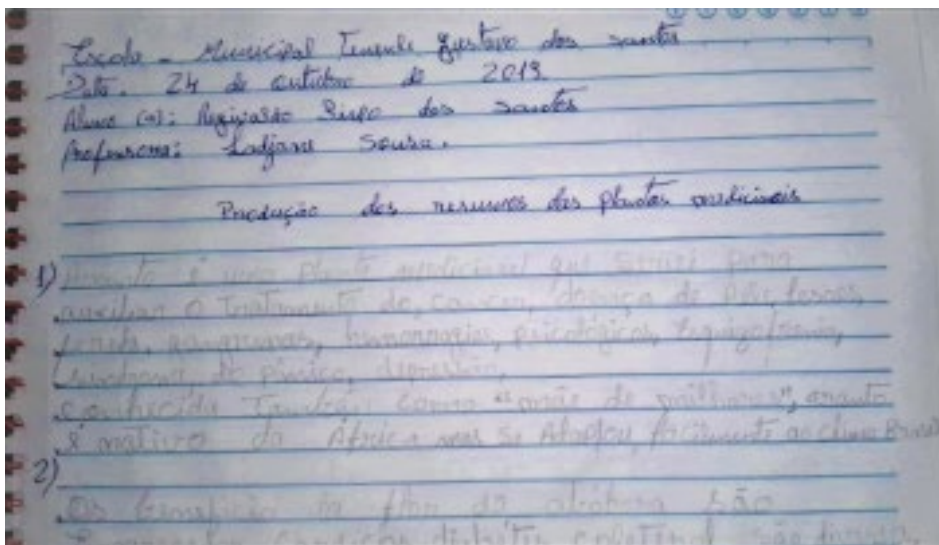 Escola - Municipal Tenente Gustavo dos santos
Data. 24 de outubro de 2019.
Aluno (a): Reginaldo dos Santos
Professora: Ladjane Souza.
Produção dos resumos das plantas medicinais
1) Aranto é uma planta medicinal que serve para
auxiliar o Tratamento de, cancer, doença de pele, lesões,
gangrenas, hemorragias, psicológicas,
do pânico, depressão,
conhecida Também como "mãe de milhares", aranto
é nativo da África mas se Adaptou facilmente ao clima
2)
Os benefícios da flor da abóbora são
colesterol são